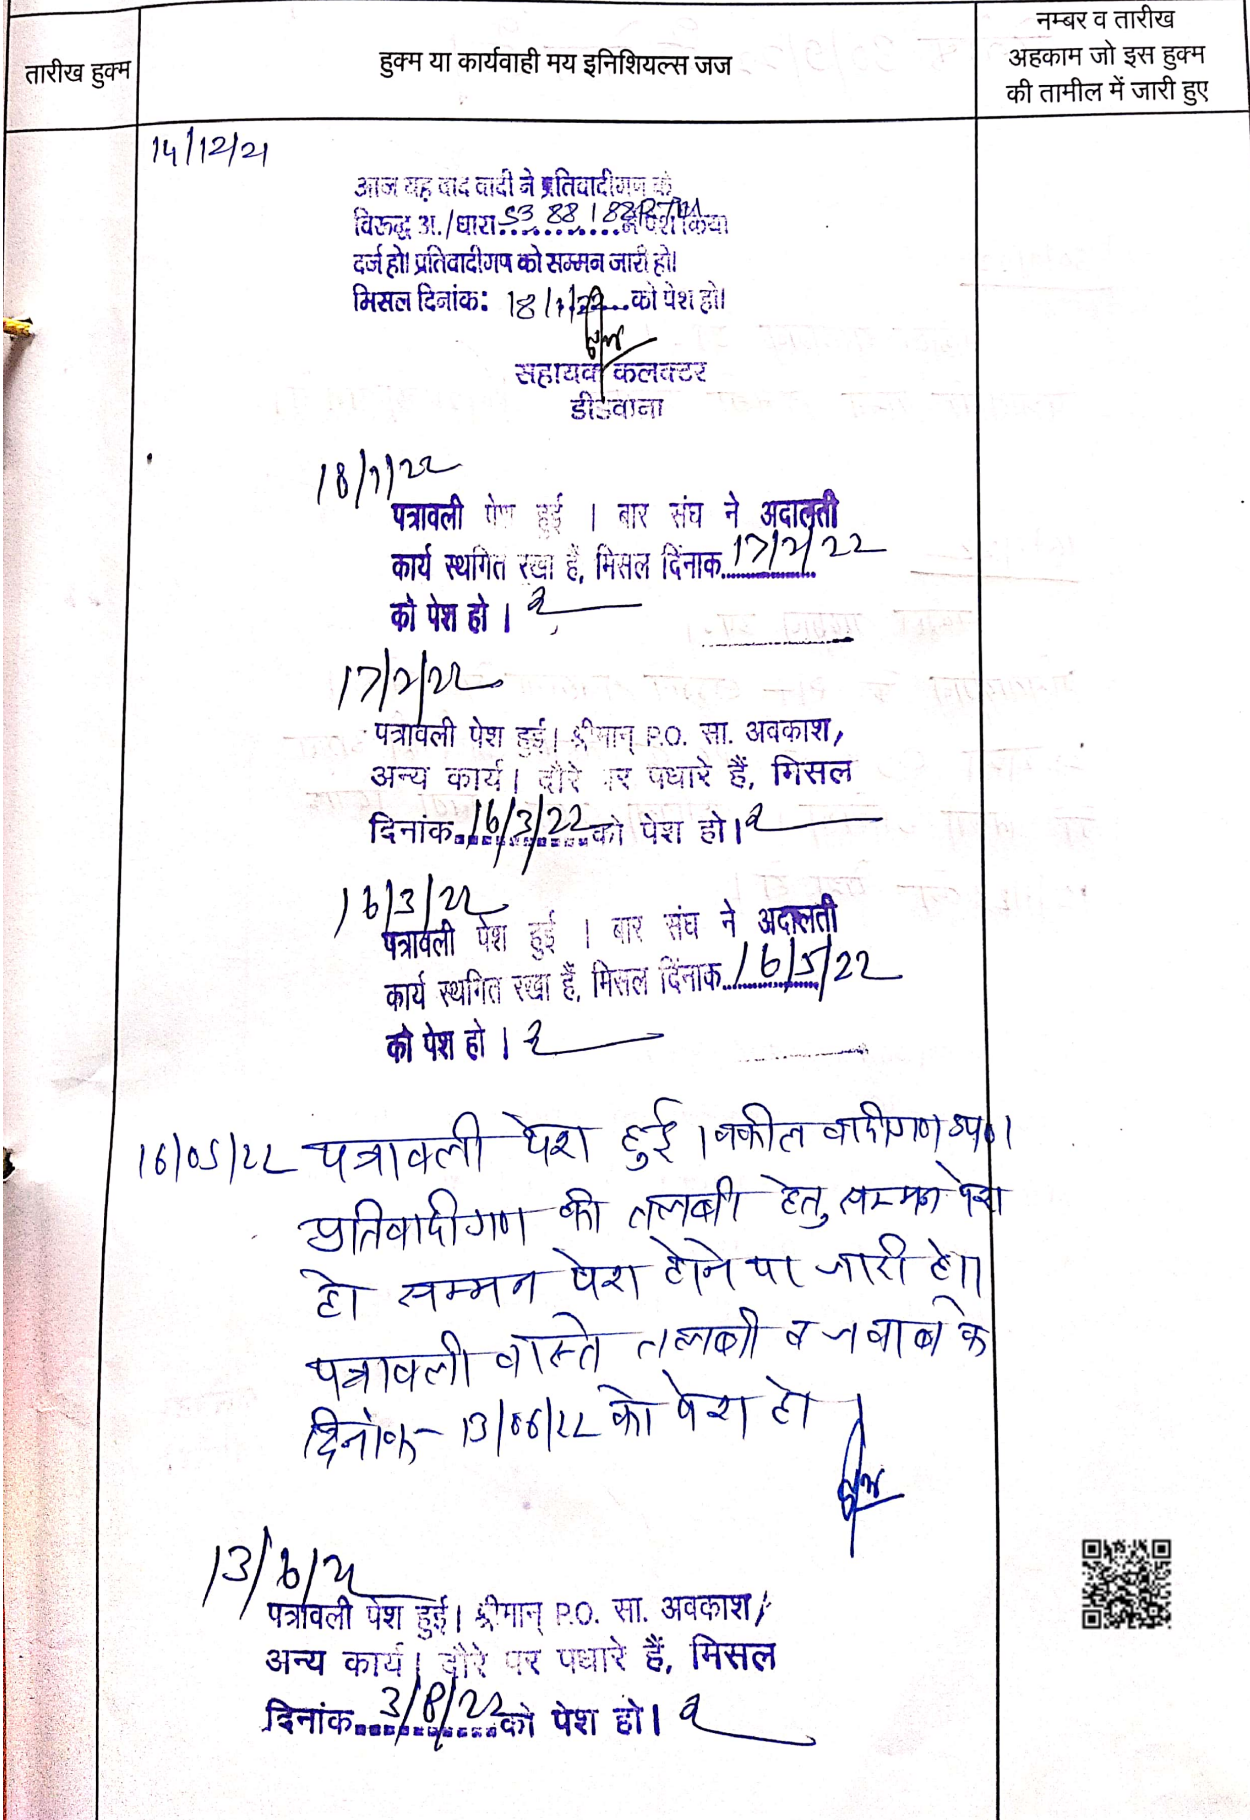 तारीख हुक्म
हुक्म या कार्यवाही मय इनिशियल्स जज
नम्बर व तारीख
अहकाम जो इस हुक्म
की तामील में जारी हुए
14/12/21
आज यह वाद वादी ने प्रतिवादीगण के
विरूद्ध अ./धारा 53 88 188 RTA में पेश किया
दर्ज हो। प्रतिवादीगण को सम्मन जारी हो।
मिसल दिनांक: 18/1/22 को पेश हो।
सहायक कलक्टर
डीडवाना
18/1/22
पत्रावली पेश हुई । बार संघ ने अदालती
कार्य स्थगित रखा हैं, मिसल दिंनाक 17/2/22
को पेश हो ।
17/2/22
पत्रावली पेश हुई। श्रीमान् P.O. सा. अवकाश,
अन्य कार्य। दौरे पर पधारे हैं, मिसल
दिनांक 16/3/22 को पेश हो।
16/3/22
पत्रावली पेश हुई । बार संघ ने अदालती
कार्य स्थगित रखा हैं, मिसल दिंनाक 16/5/22
को पेश हो ।
16/05/22 पत्रावली पेश हुई । वकील वादीगण उप०।
प्रतिवादीगण की तलबी हेतु सम्मन पेश
हो सम्मन पेश होने पर जारी हो।
पत्रावली वास्ते तलबी व जवाब के
दिनांक- 13/06/22 को पेश हो
13/6/22
पत्रावली पेश हुई। श्रीमान् P.O. सा. अवकाश,
अन्य कार्य। दौरे पर पधारे हैं, मिसल
दिनांक 3/8/22 को पेश हो।